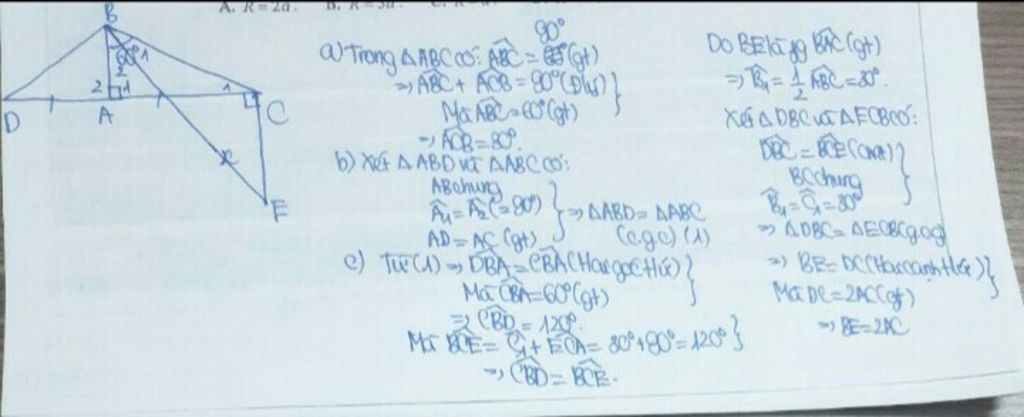 A. R = 2a. B. R = 3a.
B
60° 1
2
2 1
1
D
A
C
x
E
90°
a) Trong ΔABC có: BAC = (gt)
⇒ ABC + ACB = 90° (Đlý)
Mà ABC = 60° (gt)
⇒ ACB = 30°.
b) Xét ΔABD và ΔABC có:
AB chung
A1 = A2 (= 90°)
AD = AC (gt)
⇒ ΔABD = ΔABC
(c.g.c) (1)
c) Từ (1) ⇒ DBA = CBA (Hai góc t/ứ)
Mà CBA = 60° (gt)
⇒ CBD = 120°.
Mà BCE = C1 + ECA = 30° + 90° = 120°
⇒ CBD = BCE.
Do BE là pg BAC (gt)
⇒ B1 = 1/2 ABC = 30°.
Xét ΔDBC và ΔECB có:
DBC = BCE (cmt)
BC chung
B1 = C1 = 30°
⇒ ΔDBC = ΔECB (g.c.g)
⇒ BE = DC (Hai cạnh t/ứ)
Mà DC = 2AC (gt)
⇒ BE = 2AC